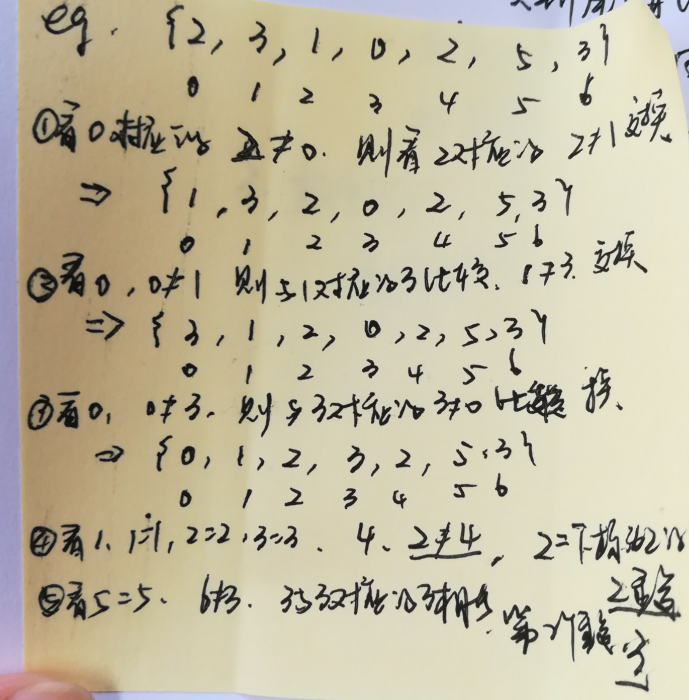 eg. {2, 3, 1, 0, 2, 5, 3}
0 1 2 3 4 5 6
①看0对应的 2≠0. 则看2对应的 2≠1 交换
⇒ {1, 3, 2, 0, 2, 5, 3}
0 1 2 3 4 5 6
②看0, 0≠1 则与1对应的3比较、1≠3. 交换
⇒ {3, 1, 2, 0, 2, 5, 3}
0 1 2 3 4 5 6
③看0, 0≠3. 则与3对应的3≠0 比较 换、
⇒ {0, 1, 2, 3, 2, 5, 3}
0 1 2 3 4 5 6
④看1、1=1, 2=2, 3=3、 4、2≠4, 2=下标为2的
2重复
⑤看5=5. 6≠3. 3与3对应的3相等. 第2个重复
字